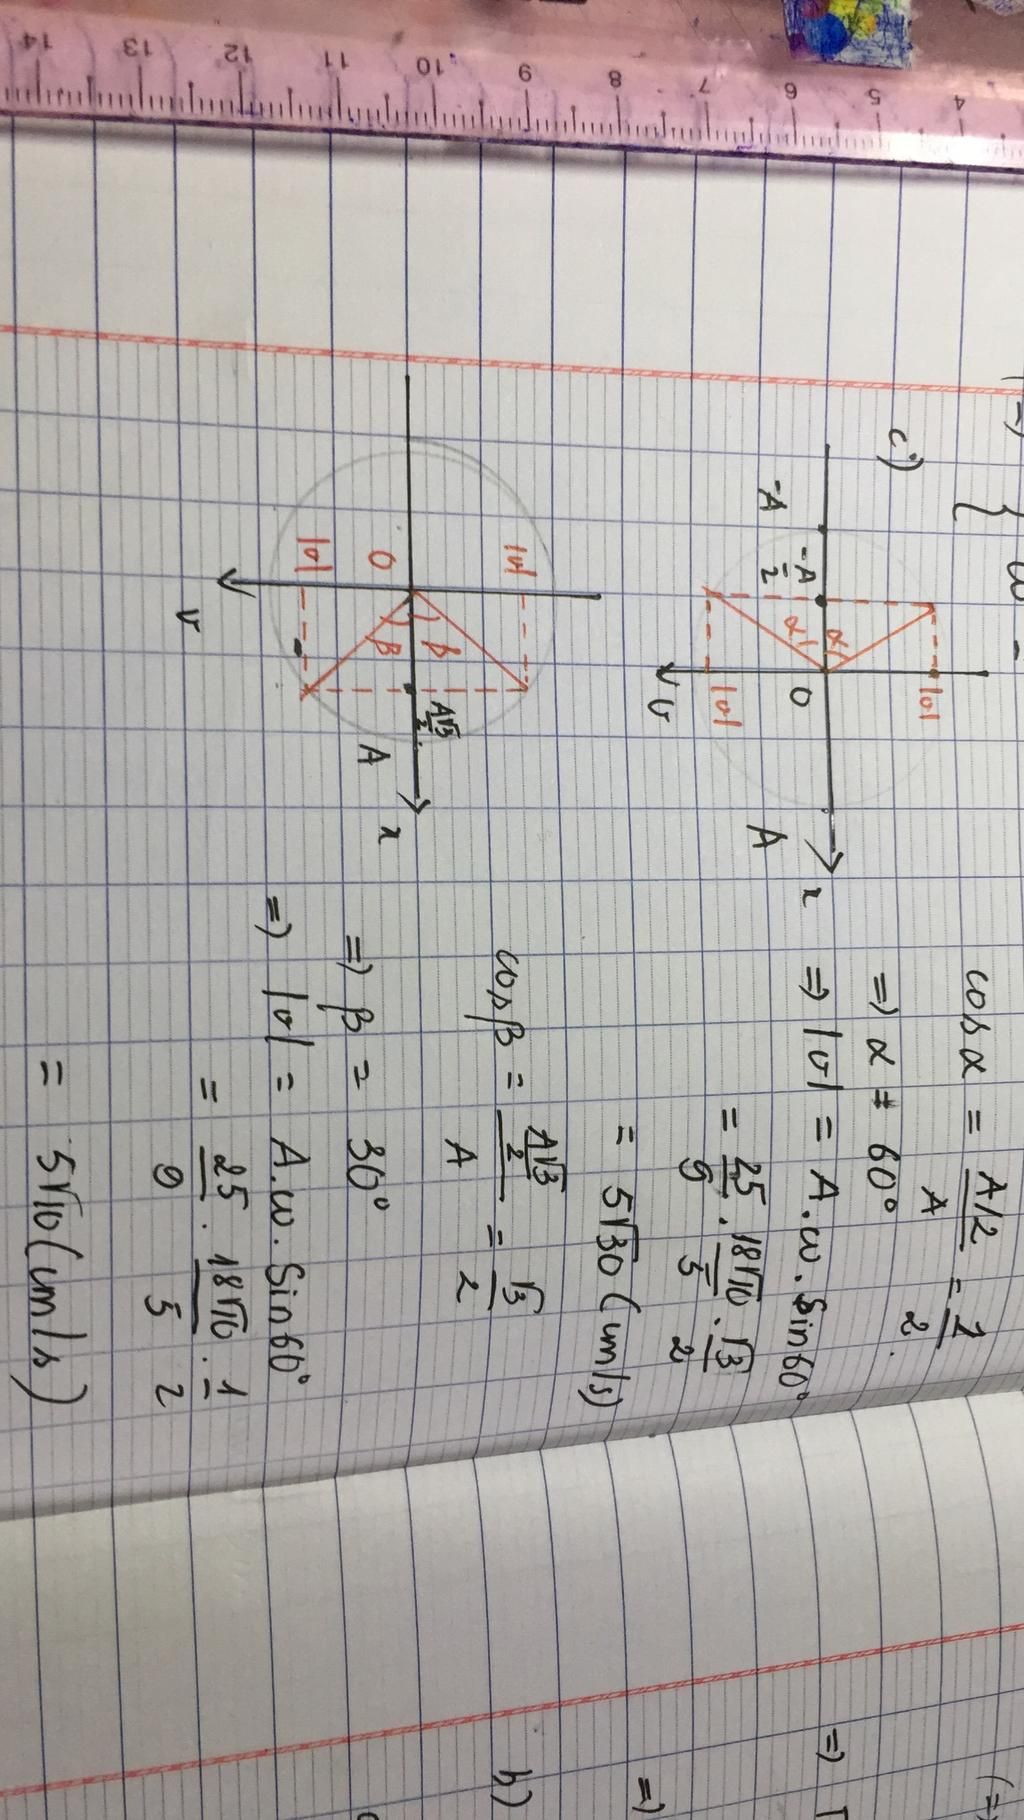 14 13 12 11 10 9 8 7 6 5 4
=) { ω =
c)
-A
-A/2
α
α
O
|v|
|v|
v
A
x
cosα = (A/2)/A = 1/2
=) α = 60°
=) |v| = A.ω.Sin60°
= 25/9 . 18√10/5 . √3/2
= 5√30 (cm/s)
|v|
|v|
O
β
β
A√3/2
A
x
v
cosβ = (A√3/2)/A = √3/2
=) β = 30°
=) |v| = A.ω.Sin60°
= 25/9 . 18√10/5 . 1/2
= 5√10 (cm/s)
=)
=)
b)